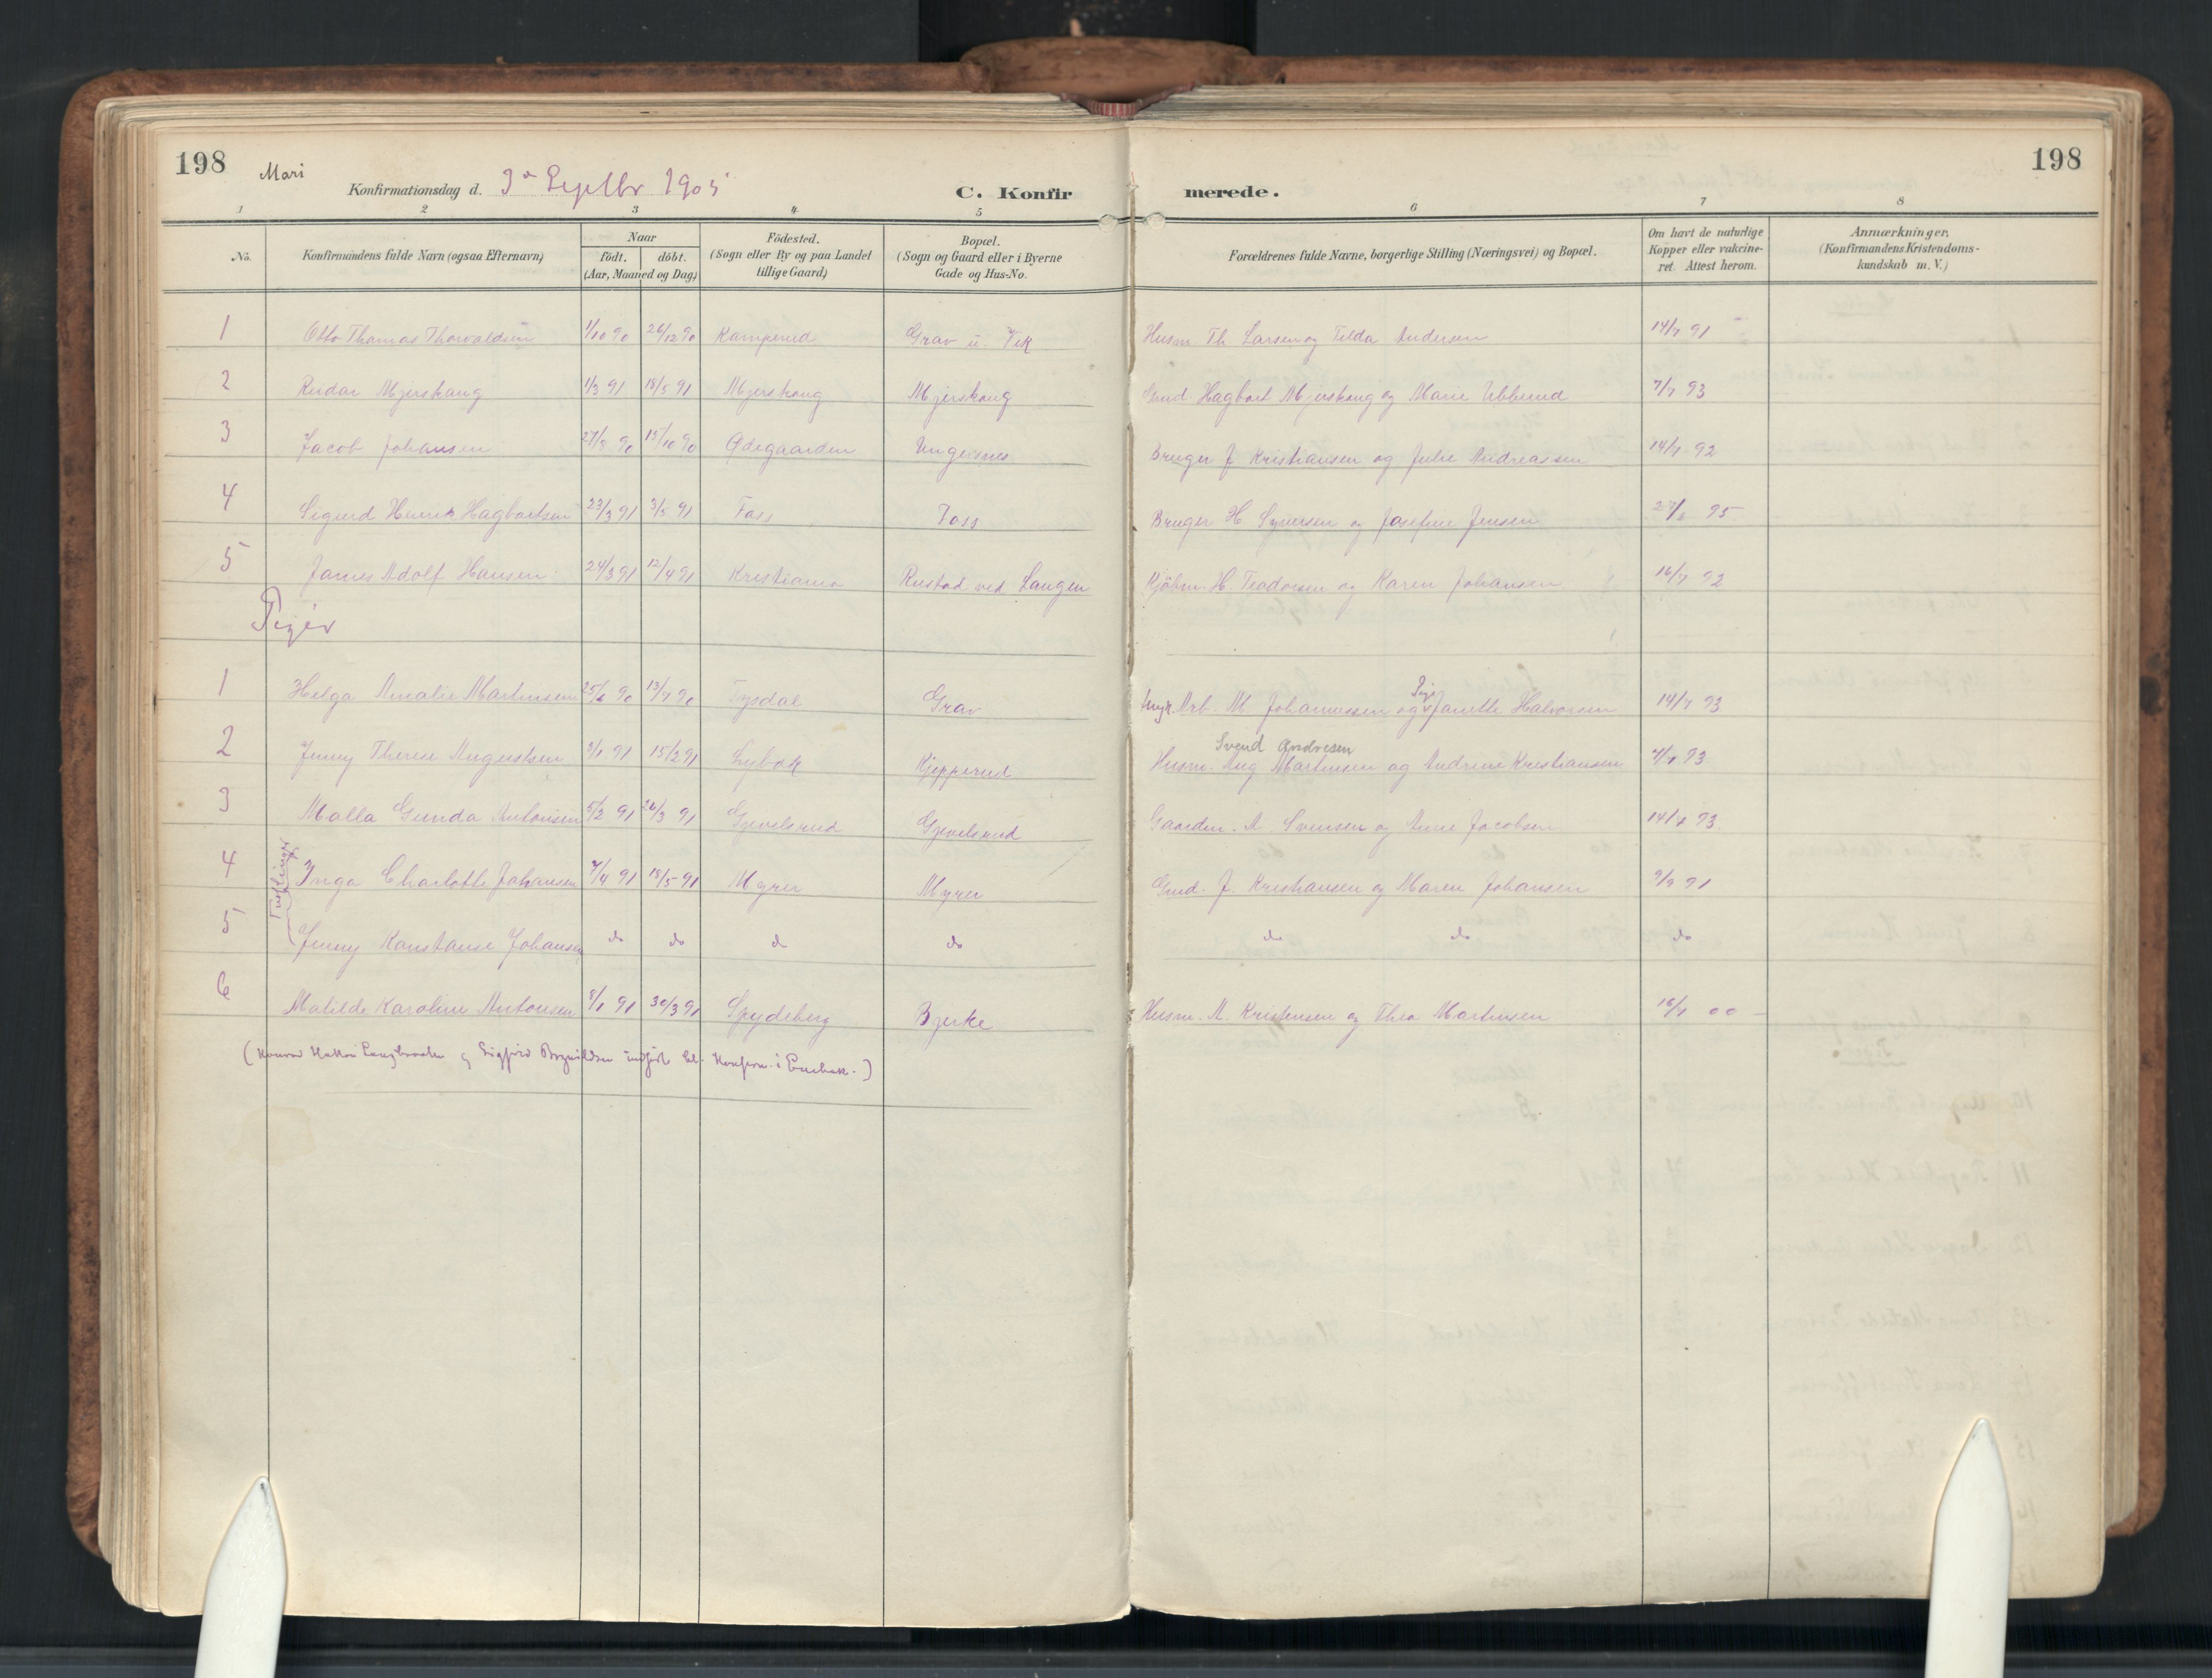 198
198
Mari
Konfirmationsdag d. 3die Septbr 1905
C. Konfirmerede.
1 2 3 4 5 6 7 8
No.
Konfirmandens fulde Navn (ogsaa Efternavn)
Naar
födt. döbt.
(Aar, Maaned og Dag)
Födested.
(Sogn eller By og paa Landet
tillige Gaard)
Bopæl.
(Sogn og Gaard eller i Byerne
Gade og Hus-No.
Forældrenes fulde Navne, borgerlige Stilling (Næringsvei) og Bopæl.
Om havt de naturlige
Kopper eller vakcine-
ret. Attest herom.
Anmærkninger.
(Konfirmandens Kristendoms-
kundskab m. V.)
1 Otto Thomas Thorvaldsen 1/10 90 26/12 90 Kamperud Grav u. Vik Husm Th Larsen og Tilda Andersen 14/7 91
2 Reidar Mjerskaug 1/3 91 18/5 91 Mjerskaug Mjerskaug Grnd Hagbart Mjerskaug og Marie Ubberud 7/7 93
3 Jacob Johansen 27/8 90 15/10 90 Ødegaarden Ungersnes Bruger J Kristiansen og Julie Andreassen 14/7 92
4 Sigurd Henrik Hagbartsen 23/3 91 3/5 91 Foss Foss Bruger H Syversen og Josefine Jensen 95
5 James Adolf Hansen 24/3 91 12/4 91 Kristiania Rustad ved Langen Kjöbm. H. Teodorsen og Karen Johansen 16/7 92
Piger
1 Helga Amalie Martinsen 25/6 90 13/7 90 Tysdal Grav Arb. M Johannessen og Pige Janette Halvorsen 14/7 93
Svend Andresen
2 Jenny Therese Augustsen 3/1 91 15/2 91 Lybæk Kjepperud Husm. Aug Martinsen og Andrine Kristiansen 7/7 93
3 Malla Gunda Antonsen 5/2 91 26/3 91 Gjevelsrud Gjevelsrud Gaardm. A Svensen og Anne Jacobsen 14/7 93
Tvillinger
4 Inga Charlotte Johansen 7/4 91 18/5 91 Myrer Myrer Grnd. J. Kristiansen og Maren Johansen 9/9 91
5 Jenny Konstanse Johansen do do do do do do do
6 Matilde Karoline Antonsen 8/1 91 30/3 91 Spydeberg Bjerke Husm. A. Kristensen og Thea Martinsen 16/7 00
(Konrad Hakon Langbraaten og Sigfrid indført bl. Konfirm. i Enebak.)